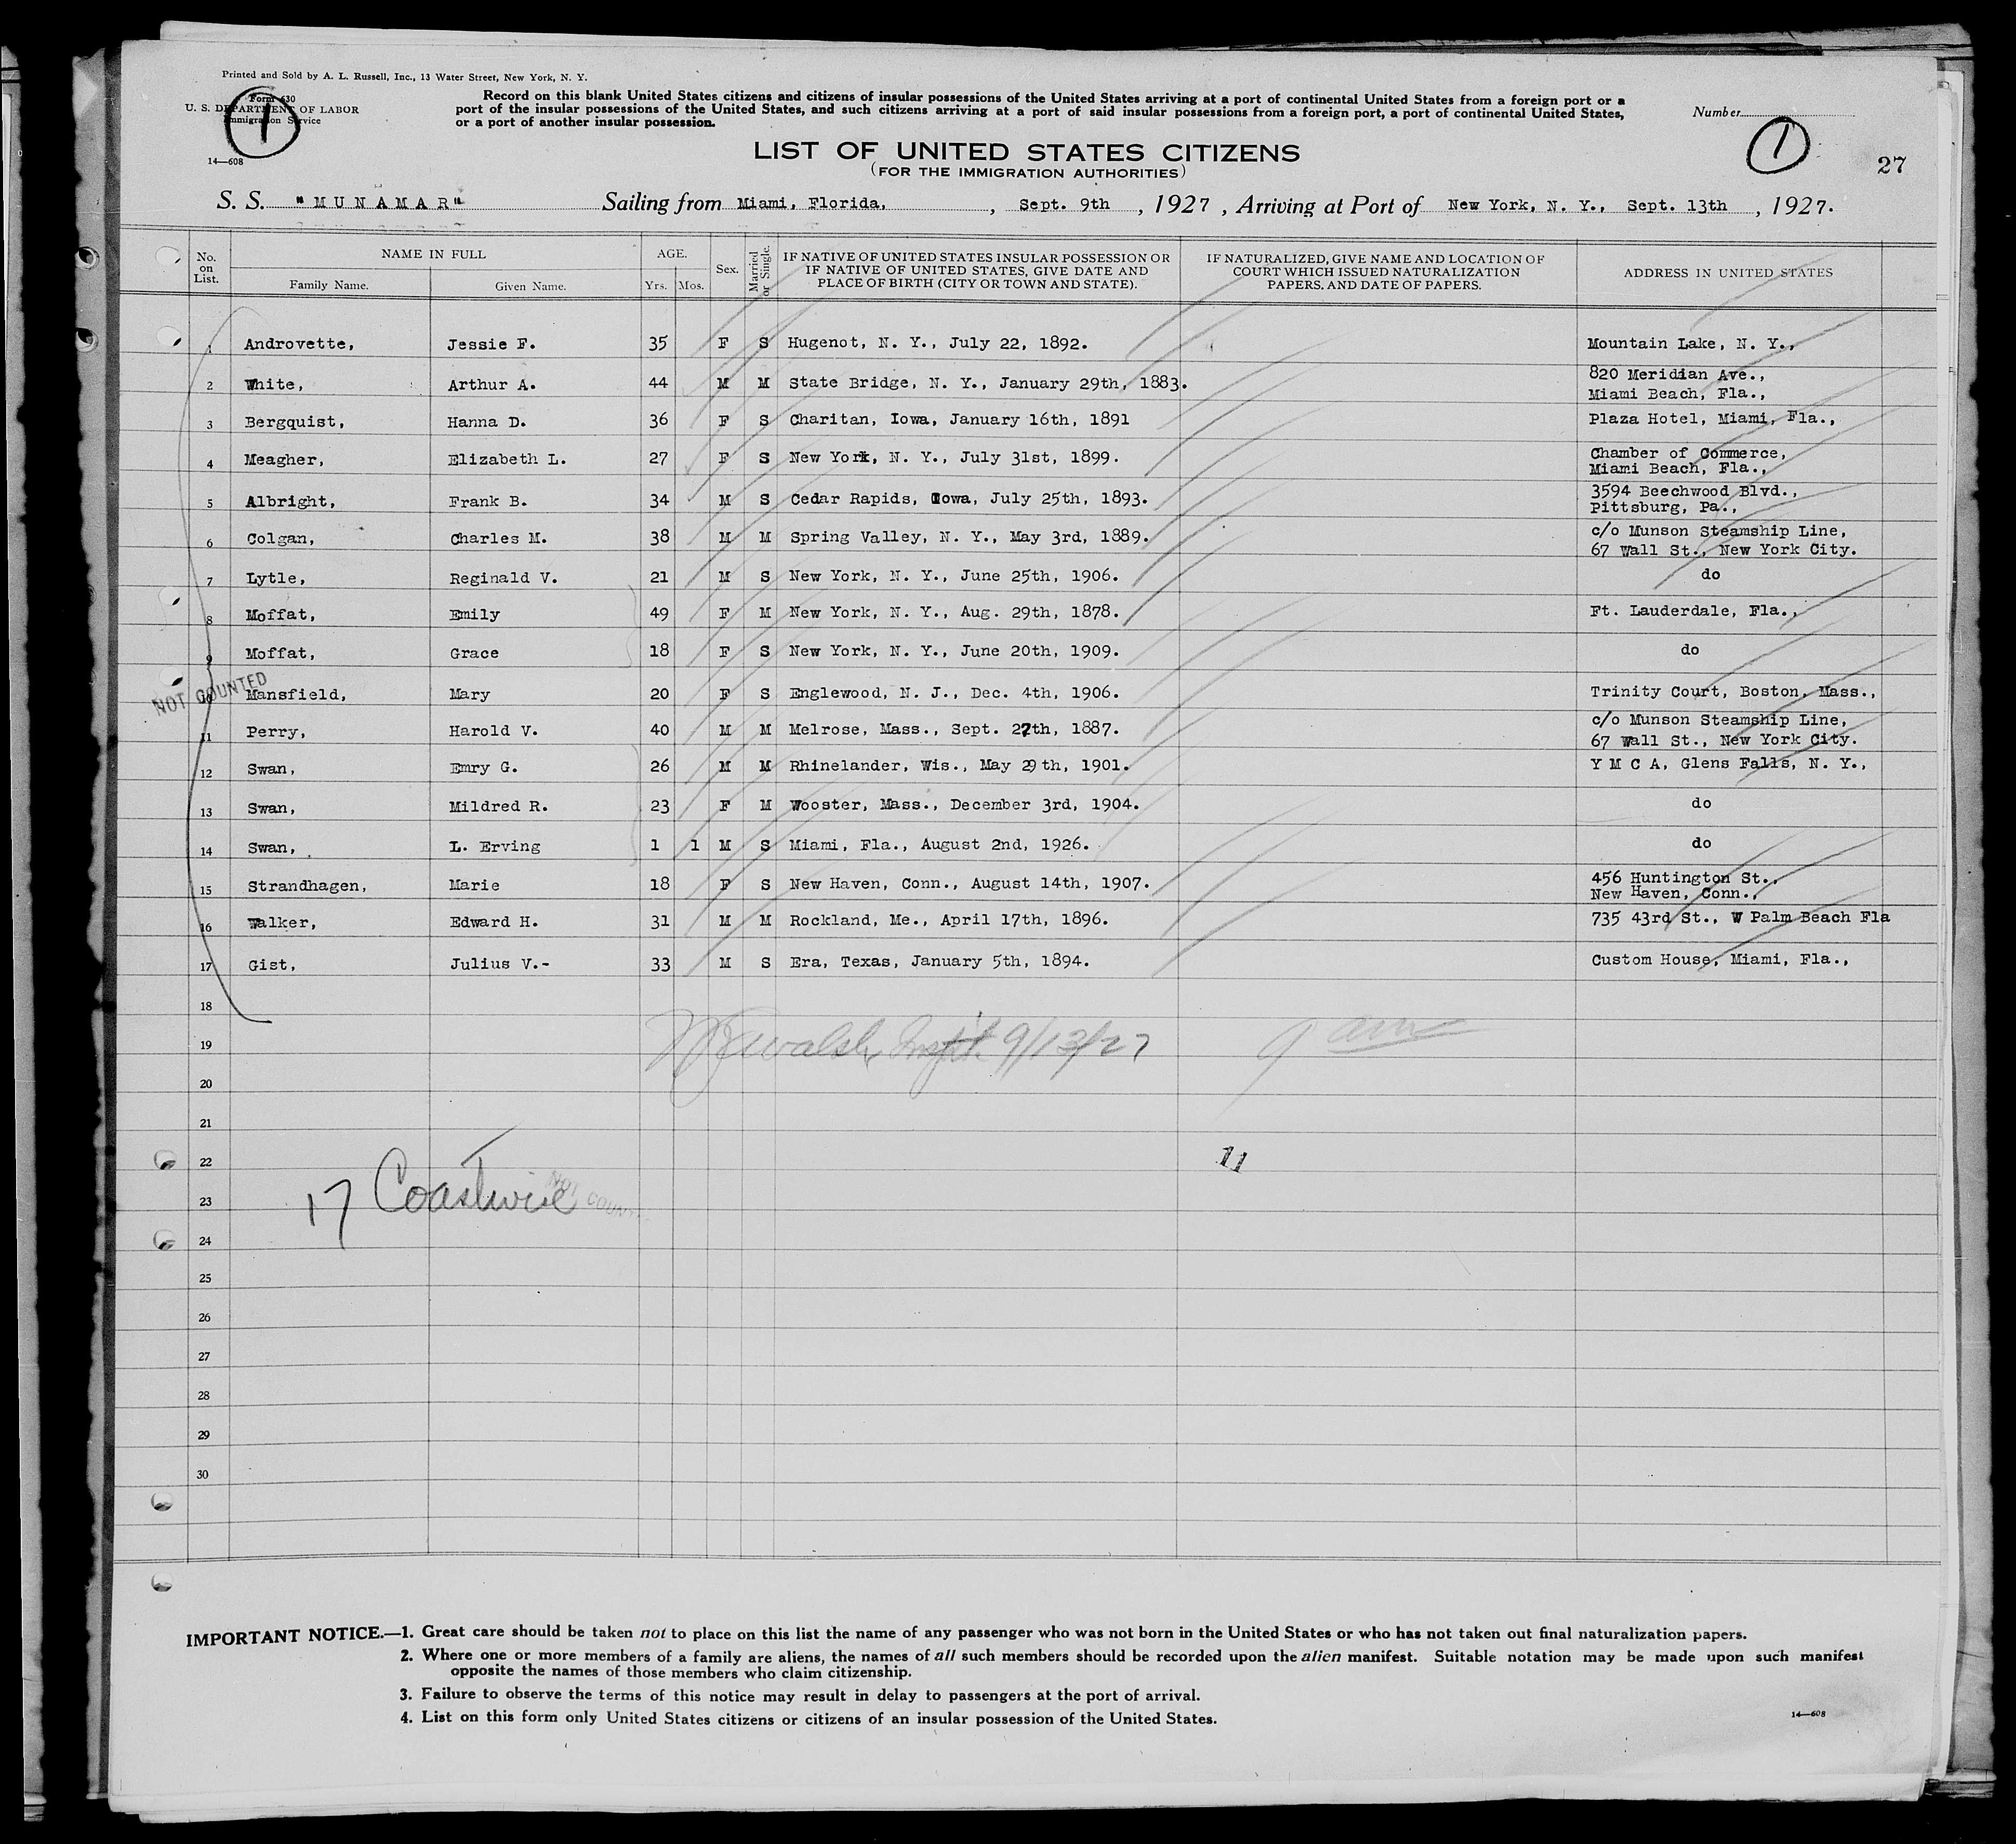 Printed and Sold by A. L. Russell, Inc., 13 Water Street, New York, N. Y.
Form 630
U. S. DEPARTMENT OF LABOR
Immigration Service
14—608
1
Record on this blank United States citizens and citizens of insular possessions of the United States arriving at a port of continental United States from a foreign port or a
port of the insular possessions of the United States, and such citizens arriving at a port of said insular possessions from a foreign port, a port of continental United States,
or a port of another insular possession.
Number
1
27
LIST OF UNITED STATES CITIZENS
(FOR THE IMMIGRATION AUTHORITIES)
S. S. "MUNAMAR" Sailing from Miami, Florida, , Sept. 9th , 1927 , Arriving at Port of New York, N. Y., Sept. 13th , 1927.
No. on List. NAME IN FULL Family Name. Given Name. AGE. Yrs. Mos. Sex. Married or Single. IF NATIVE OF UNITED STATES INSULAR POSSESSION OR IF NATIVE OF UNITED STATES, GIVE DATE AND PLACE OF BIRTH (CITY OR TOWN AND STATE). IF NATURALIZED, GIVE NAME AND LOCATION OF COURT WHICH ISSUED NATURALIZATION PAPERS. AND DATE OF PAPERS. ADDRESS IN UNITED STATES
1 Androvette, Jessie F. 35 F S Hugenot, N. Y., July 22, 1892. Mountain Lake, N. Y.,
2 White, Arthur A. 44 M M State Bridge, N. Y., January 29th, 1883. 820 Meridian Ave.,
Miami Beach, Fla.,
3 Bergquist, Hanna D. 36 F S Charitan, Iowa, January 16th, 1891 Plaza Hotel, Miami, Fla.,
4 Meagher, Elizabeth L. 27 F S New York, N. Y., July 31st, 1899. Chamber of Commerce,
Miami Beach, Fla.,
5 Albright, Frank B. 34 M S Cedar Rapids, Iowa, July 25th, 1893. 3594 Beechwood Blvd.,
Pittsburg, Pa.,
6 Colgan, Charles M. 38 M M Spring Valley, N. Y., May 3rd, 1889. c/o Munson Steamship Line,
67 Wall St., New York City.
7 Lytle, Reginald V. 21 M S New York, N. Y., June 25th, 1906. do
8 Moffat, Emily 49 F M New York, N. Y., Aug. 29th, 1878. Ft. Lauderdale, Fla.,
9 Moffat, Grace 18 F S New York, N. Y., June 20th, 1909. do
NOT COUNTED
10 Mansfield, Mary 20 F S Englewood, N. J., Dec. 4th, 1906. Trinity Court, Boston, Mass.,
11 Perry, Harold V. 40 M M Melrose, Mass., Sept. 27th, 1887. c/o Munson Steamship Line,
67 Wall St., New York City.
12 Swan, Emry G. 26 M M Rhinelander, Wis., May 29th, 1901. Y M C A, Glens Falls, N. Y.,
13 Swan, Mildred R. 23 F M Wooster, Mass., December 3rd, 1904. do
14 Swan, L. Erving 1 1 M S Miami, Fla., August 2nd, 1926. do
15 Strandhagen, Marie 18 F S New Haven, Conn., August 14th, 1907. 456 Huntington St.,
New Haven, Conn.,
16 Walker, Edward H. 31 M M Rockland, Me., April 17th, 1896. 735 43rd St., W Palm Beach Fla
17 Gist, Julius V.- 33 M S Era, Texas, January 5th, 1894. Custom House, Miami, Fla.,
18
19 Walsh Inspt. 9/13/27 9 am
20
21
22 11
23 17 Coastwise NOT COUN
24
25
26
27
28
29
30
IMPORTANT NOTICE.—1. Great care should be taken not to place on this list the name of any passenger who was not born in the United States or who has not taken out final naturalization papers.
2. Where one or more members of a family are aliens, the names of all such members should be recorded upon the alien manifest. Suitable notation may be made upon such manifest
opposite the names of those members who claim citizenship.
3. Failure to observe the terms of this notice may result in delay to passengers at the port of arrival.
4. List on this form only United States citizens or citizens of an insular possession of the United States.
14—608